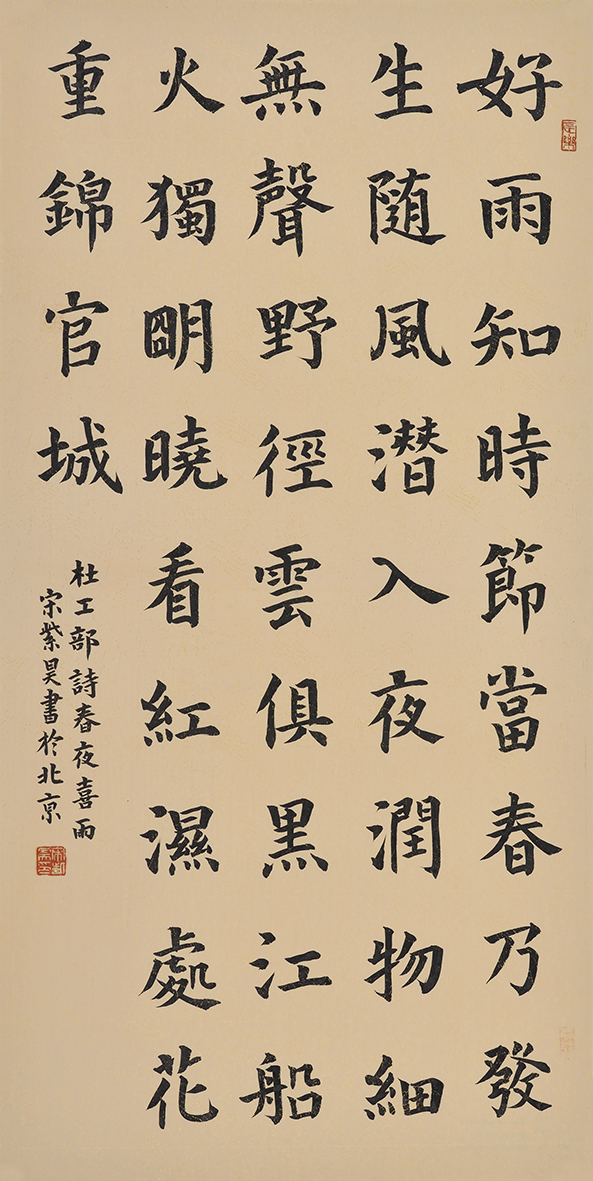 好雨知時節當春乃發
生随風潛入夜潤物細
無聲野徑雲俱黑江船
火獨明曉看紅濕處花
重錦官城
杜工部詩春夜喜雨
宋紫昊書於北京